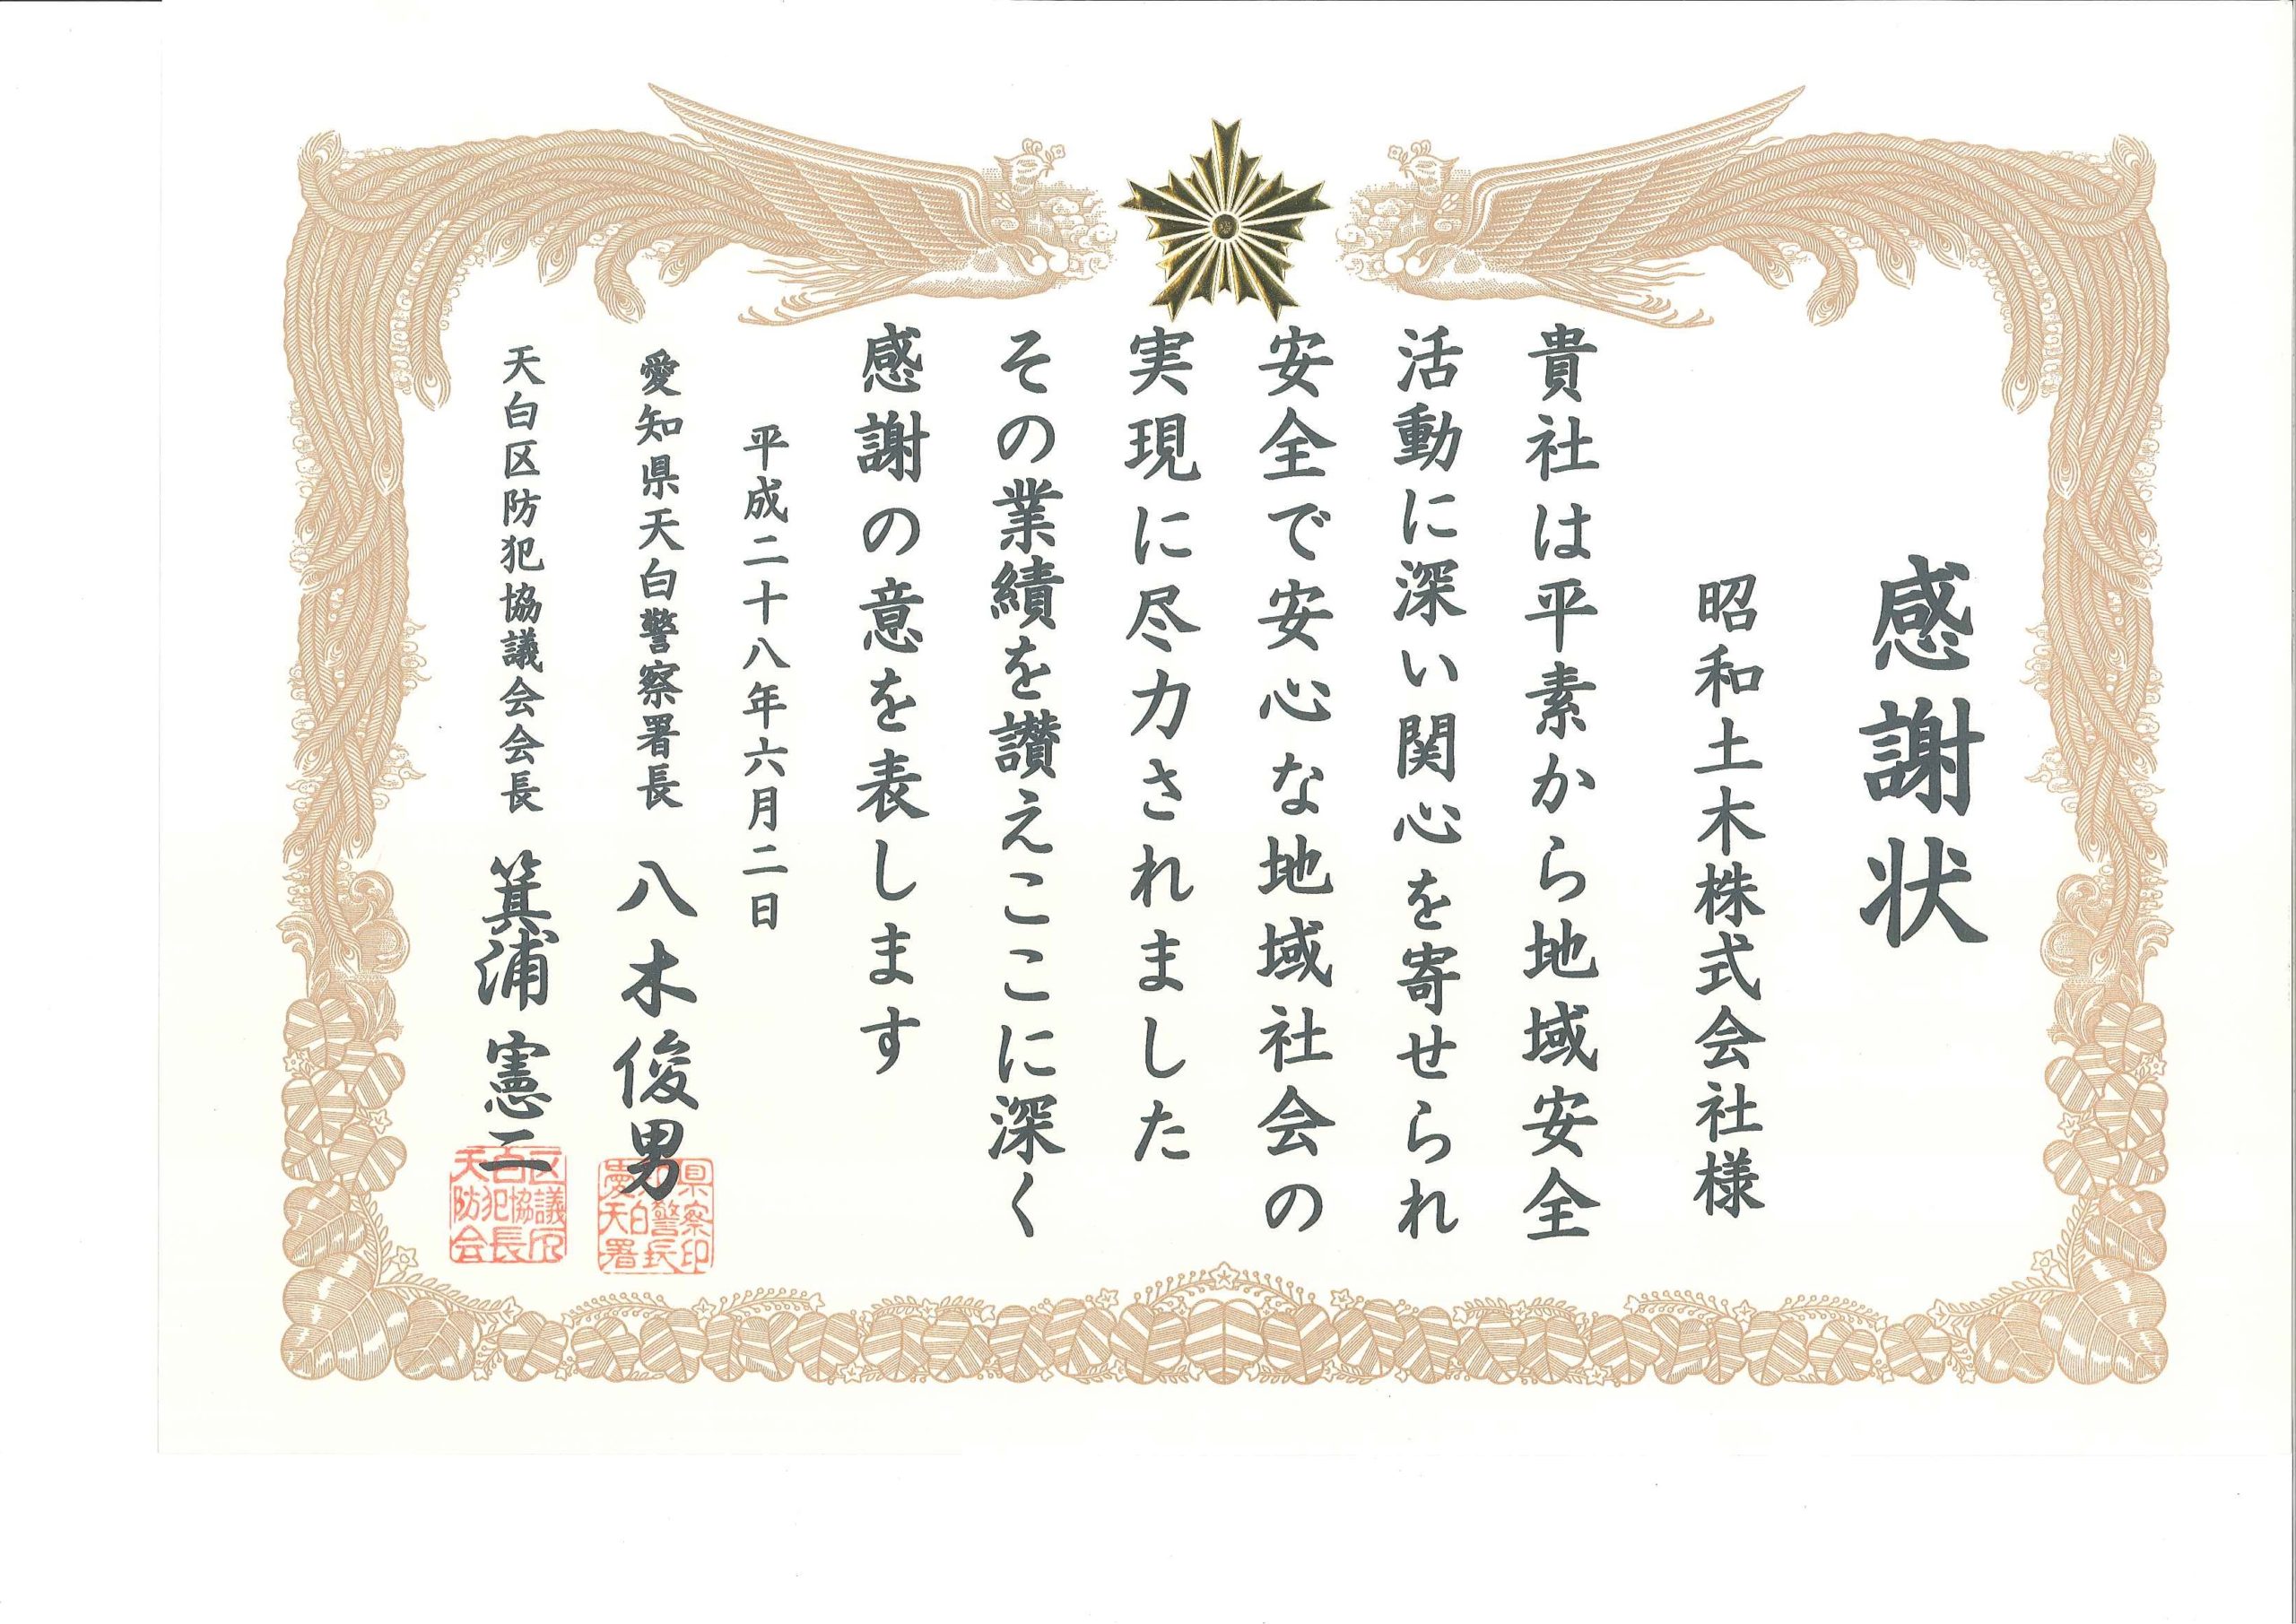 感謝状
昭和土木株式会社様
貴社は平素から地域安全
活動に深い関心を寄せられ
安全で安心な地域社会の
実現に尽力されました
その業績を讃えここに深く
感謝の意を表します
平成二十八年六月二日
愛知県天白警察署長 八木俊男
天白区防犯協議会会長 箕浦憲二